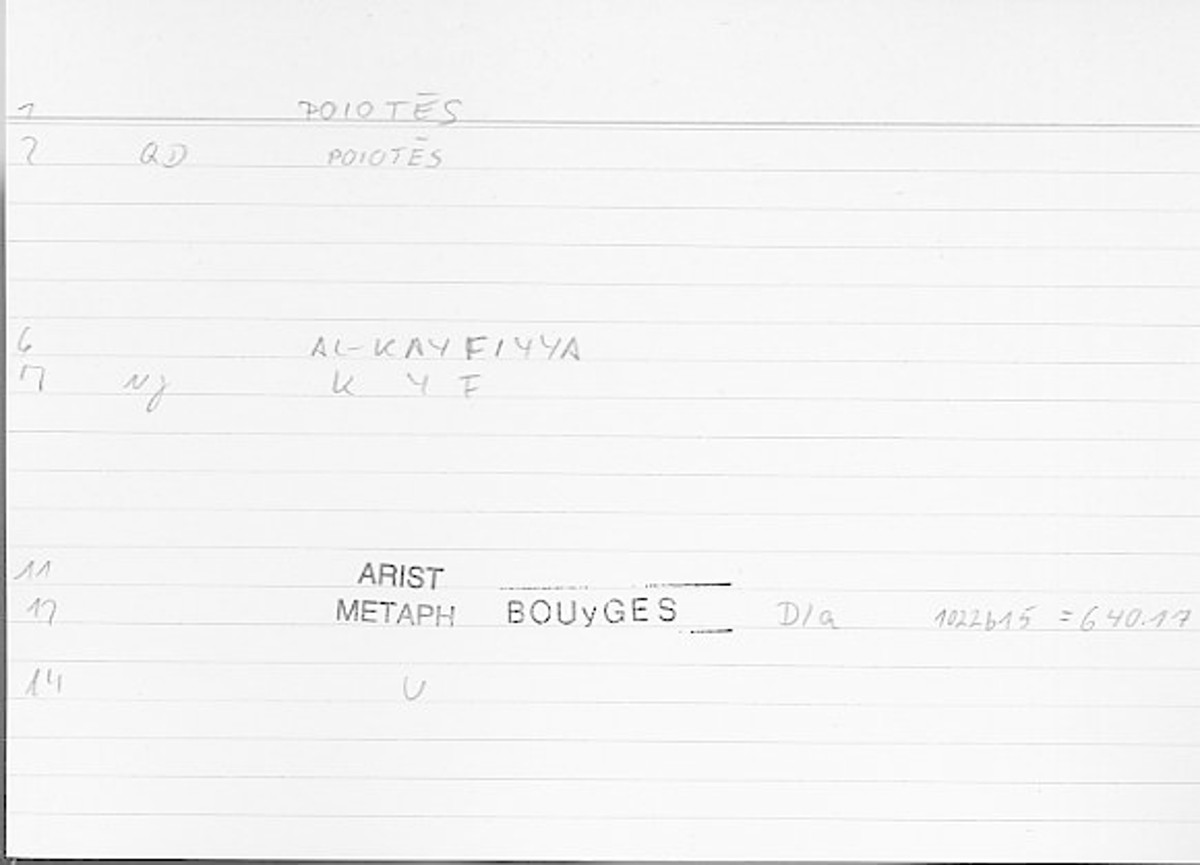 1 POIOTĒS
2 QD POIOTĒS
6 AL-KAYFIYYA
7 NJ K Y F
11 ARIST
12 METAPH BOUyGES D/a 1022b15 = 640.17
14 U